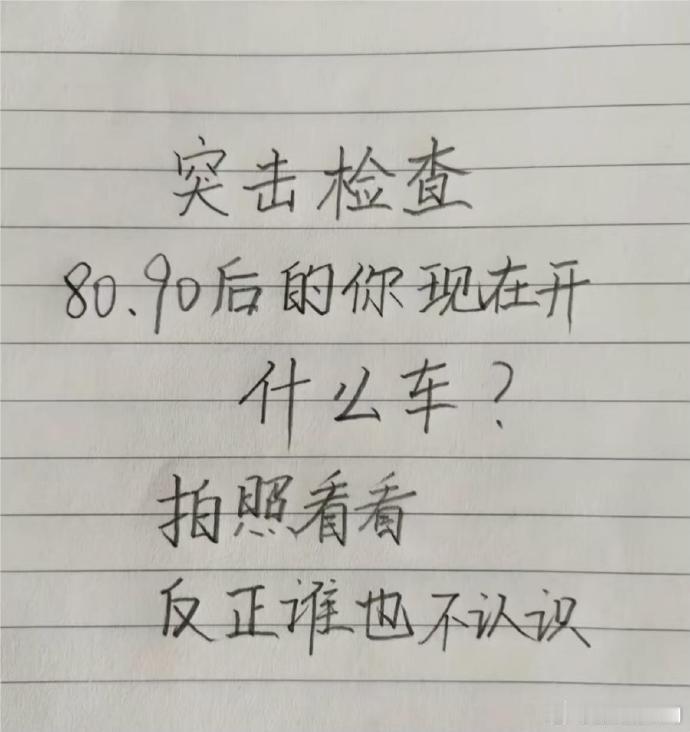 突击检查
80、90后的你现在开
什么车?
拍照看看
反正谁也不认识